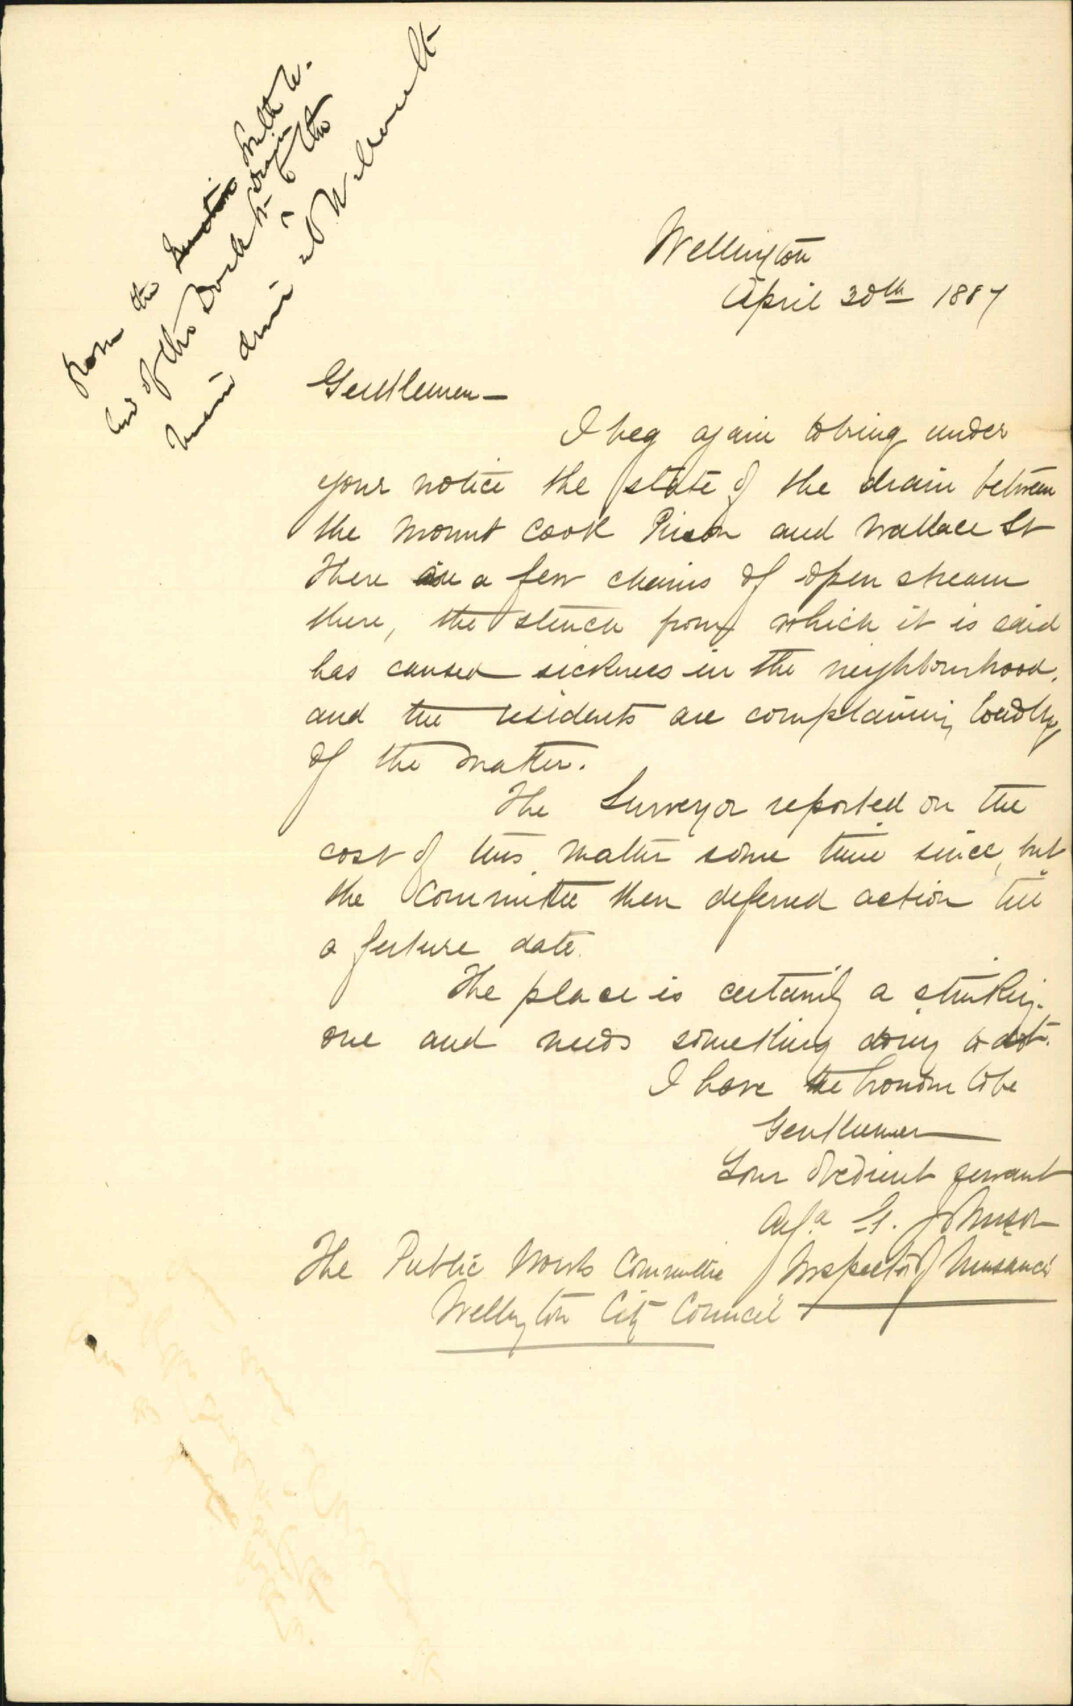 from the South W.
end of the Dock St drain to the
main drain at
Wellington
April 30th 1887
Gentlemen —
I beg again to bring under
your notice the state of the drain between
the Mount Cook Prison and Wallace St
There are a few chains of open stream
there, the stench from which it is said
has caused sickness in the neighbourhood,
and the residents are complaining loudly
of the matter.
The Surveyor reported on the
cost of this matter some time since, but
the Committee then deferred action till
a furture date.
The place is certainly a stinking
one and needs something doing to it.
I have the honour to be
Gentlemen
Your obedient servant
G. Johnson
The Public Works Committee Inspector of Nusance
Wellington City Council